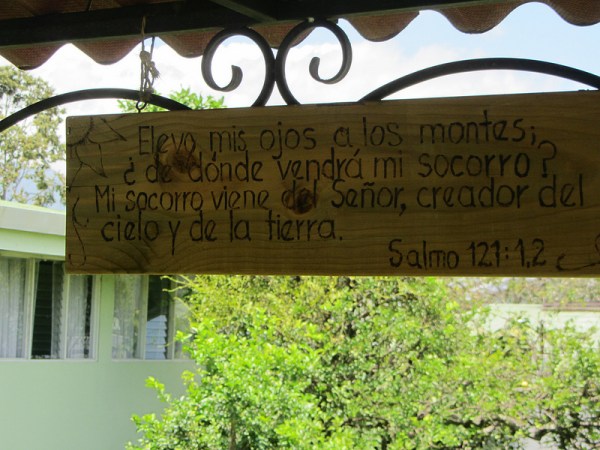 Elevo mis ojos a los montes;
¿de dónde vendrá mi socorro?
Mi socorro viene del Señor, creador del
cielo y de la tierra.
Salmo 121:1,2